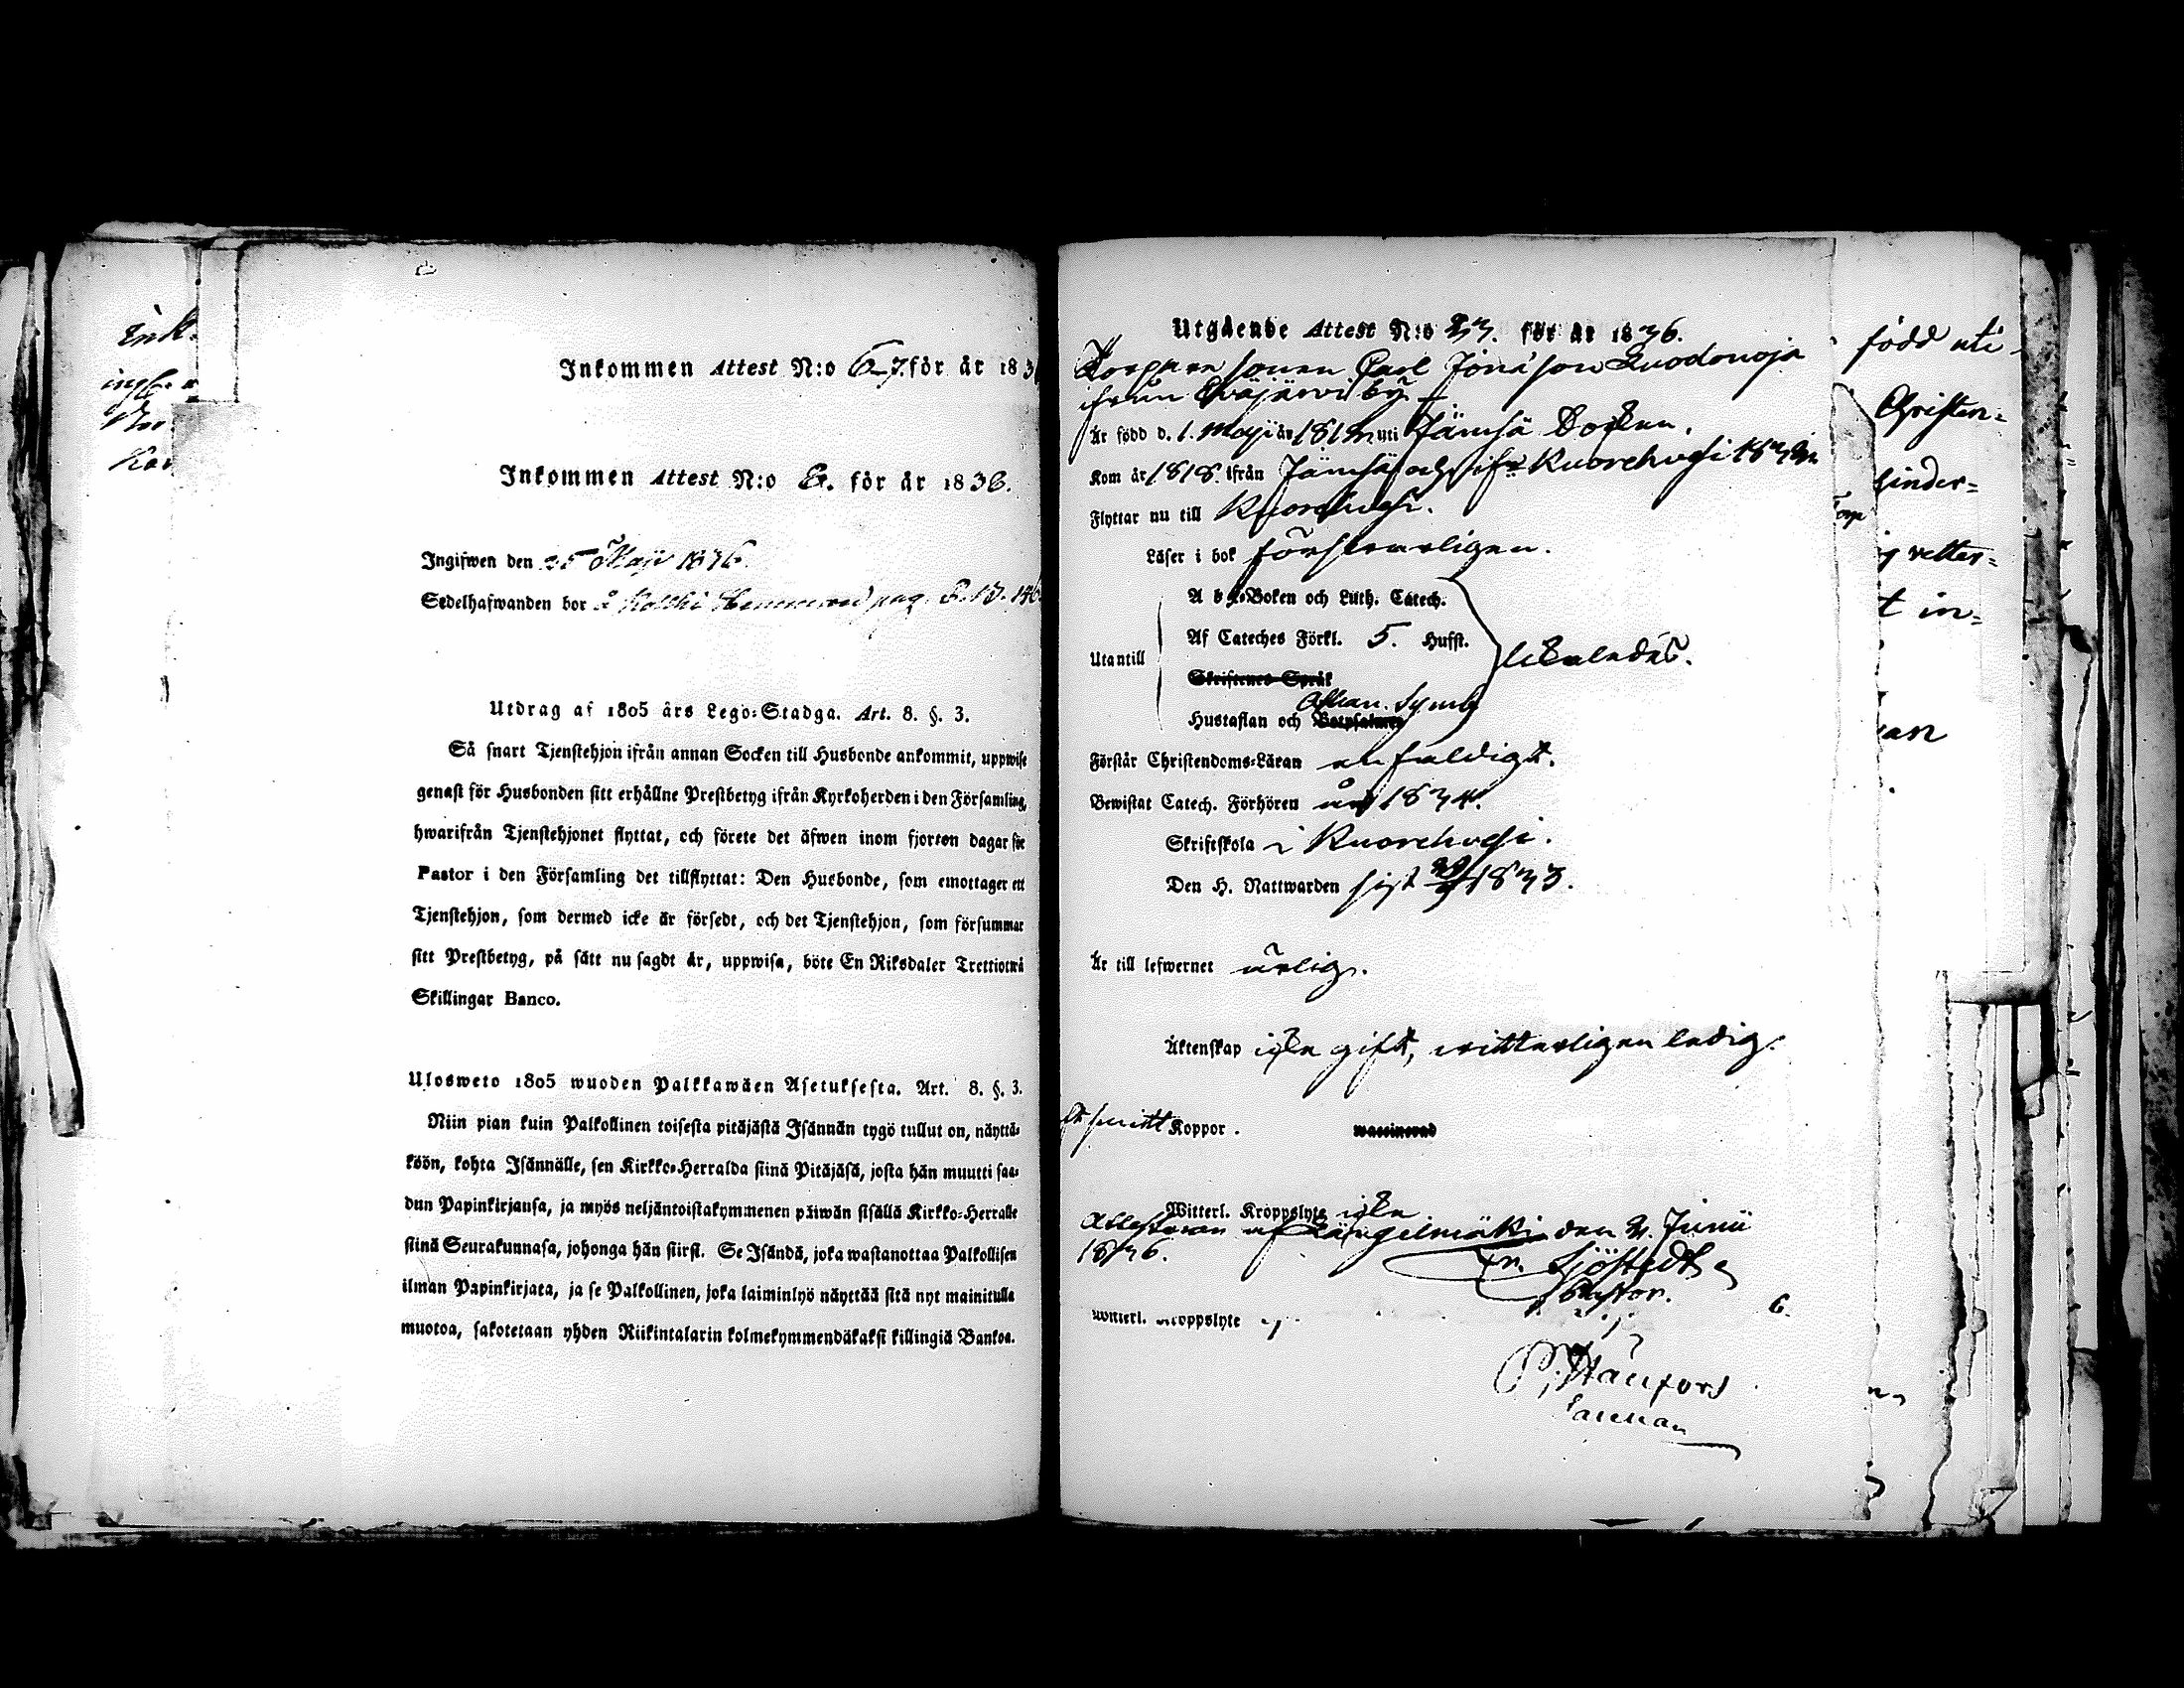 Ink.
Inkommen Attest N:o 67. för år 183
Inkommen Attest N:o 8. för år 1836.
Ingifwen den 25 Maji 1836.
Sedelhafwanden bor å pag.
Utdrag af 1805 års Lego-Stadga. Art. 8. §. 3.
Så snart Tjenstehjon ifrån annan Socken till Husbonde ankommit, uppwise
genast för Husbonden sitt erhållne Prestbetyg ifrån Kyrkoherden i den Församling,
hwarifrån Tjenstehjonet flyttat, och förete det äfwen inom fjorton dagar för
Pastor i den Församling det tillflyttat: Den Husbonde, som emottager ett
Tjenstehjon, som dermed icke är försedt, och det Tjenstehjon, som försummar
sitt Prestbetyg, på sätt nu sagdt är, uppwisa, böte En Riksdaler Trettiotwå
Skillingar Banco.
Ulosweto 1805 wuoden Palkkawäen Asetuksesta. Art. 8. §. 3.
Niin pian kuin Palkollinen toisesta pitäjästä Isännän tygö tullut on, näyttä-
köön, kohta Isännälle, sen Kirkko-Herralda siinä Pitäjäsä, josta hän muutti saa-
dun Papinkirjansa, ja myös neljäntoistakymmenen päiwän sisällä Kirkko-Herralle
siinä Seurakunnasa, johonga hän siirsi. Se Isändä, joka wastanottaa Palkollisen
ilman Papinkirjata, ja se Palkollinen, joka laiminlyö näyttää sitä nyt mainitulla
muotoa, sakotetaan yhden Riikintalarin kolmekymmendäkaksi killingiä Bankoa.
Utgående Attest N:o 33. för år 1836.
Torpare sonen Carl Jonäson Luodonoja
från Eväjärvi by
Är född d. 1. Maji år 181 uti Jämsä Socken.
Kom år 1818. ifrån Jämsä och ifr. Kuorehvesi
Flyttar nu till Kuorehvesi.
Läser i bok försvarligen.
A b c-Boken och Luth. Catech.
Af Cateches Förkl. 5. Hufst.
Utantill
likaledes.
Skriftenes Språk
Athan. Symb.
Hustaflan och Botpsalmer
Förstår Christendoms-Läran enfaldigt.
Bewistat Catech. Förhören år 1834.
Skriftskola i Kuorehvesi.
Den H. Nattwarden sist 1833.
Är till lefwernet ärlig.
Äktenskap icke gift, witterligen ledig.
Koppor. waccinerad
Witterl. Kroppslyte icke
Attesteras af Längelmäki den 2. Junii
1836.
Sjöstedt
Pastor.
Witterl. Kroppslyte
6.
född uti
Christen-
hinder-
vetter-
t in-